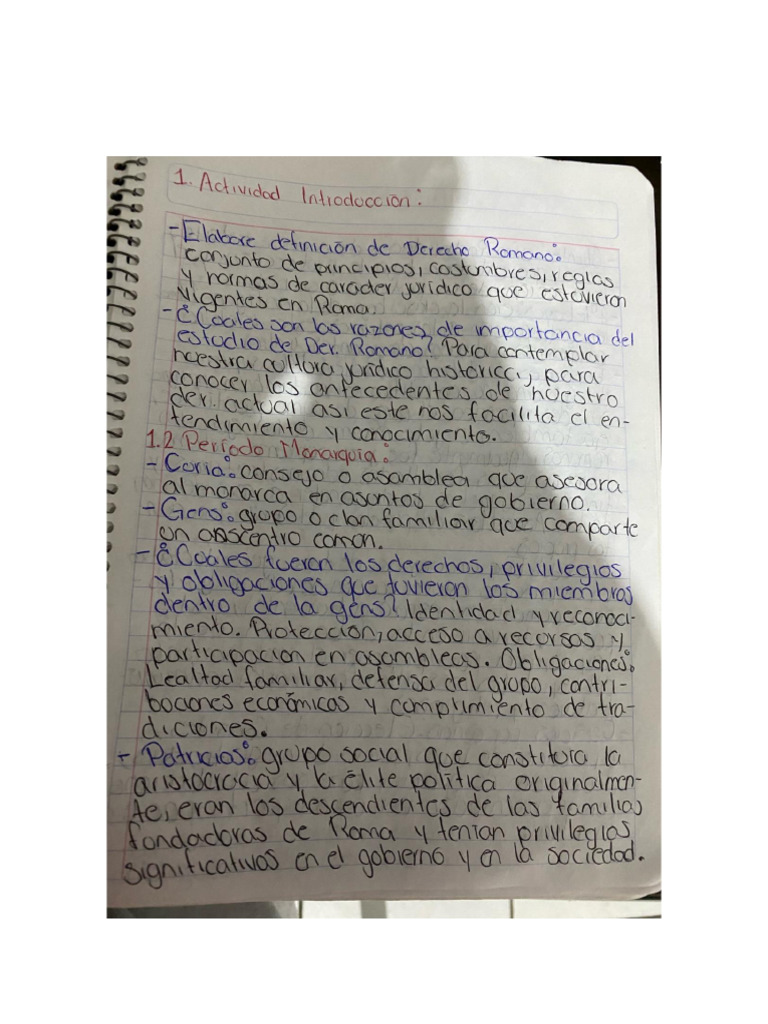 1. Actividad Introducción:
- Elabore definición de Derecho Romano:
conjunto de principios, costumbres, reglas
y normas de carácter jurídico que estuvieron
vigentes en Roma.
- ¿Cuales son las razones de importancia del
estudio de Der. Romano? Para contemplar
nuestra cultura jurídico historica, para
conocer los antecedentes de nuestro
der. actual asi este nos facilita el en-
tendimiento y conocimiento.
1.2 Período Monarquia:
- Curia: consejo o asamblea que asesora
al monarca en asuntos de gobierno.
- Gens: grupo o clan familiar que comparte
un común.
- ¿Cuales fueron los derechos, privilegios
y obligaciones que tuvieron los miembros
dentro de la gens? Identidad y reconoci-
miento. Protección, acceso a recursos y
participación en asambleas. Obligaciones:
Lealtad familiar, defensa del grupo, contri-
buciones económicas y cumplimiento de tra-
diciones.
- Patricios: grupo social que constituia la
aristocracia y la élite política originalmen-
te, eran los descendientes de las familias
fundadoras de Roma y tenian privilegios
significativos en el gobierno y en la sociedad.